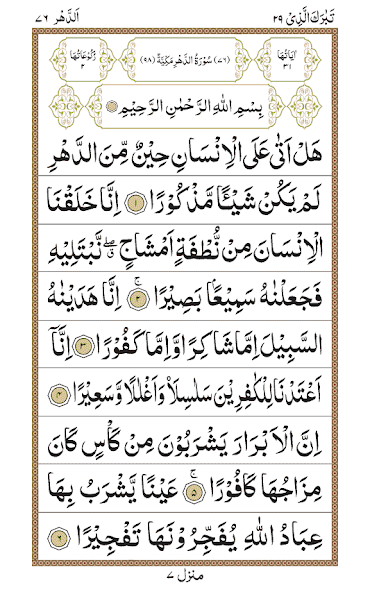 تَبٰرَكَ الَّذِیْ ۲۹
اَلدَّهْر ۷۶
اٰیَاتُهَا ۳۱
(۷۶) سُوْرَةُ الدَّهْرِ مَكِّیَّةٌ (۹۸)
رُكُوْعَاتُهَا ۲
بِسْمِ اللّٰهِ الرَّحْمٰنِ الرَّحِیْمِ
هَلْ اَتٰى عَلَى الْاِنْسَانِ حِیْنٌ مِّنَ الدَّهْرِ
لَمْ یَكُنْ شَیْـًٔا مَّذْكُوْرًا ۱ اِنَّا خَلَقْنَا
الْاِنْسَانَ مِنْ نُّطْفَةٍ اَمْشَاجٍ ۖۗ نَّبْتَلِیْهِ
فَجَعَلْنٰهُ سَمِیْعًۢا بَصِیْرًا ۲ اِنَّا هَدَیْنٰهُ
السَّبِیْلَ اِمَّا شَاكِرًا وَّاِمَّا كَفُوْرًا ۳ اِنَّاۤ
اَعْتَدْنَا لِلْكٰفِرِیْنَ سَلٰسِلَا۠ وَاَغْلٰلًا وَّسَعِیْرًا ۴
اِنَّ الْاَبْرَارَ یَشْرَبُوْنَ مِنْ كَاْسٍ كَانَ
مِزَاجُهَا كَافُوْرًا ۚ ۵ عَیْنًا یَّشْرَبُ بِهَا
عِبَادُ اللّٰهِ یُفَجِّرُوْنَهَا تَفْجِیْرًا ۶
منزل ۷